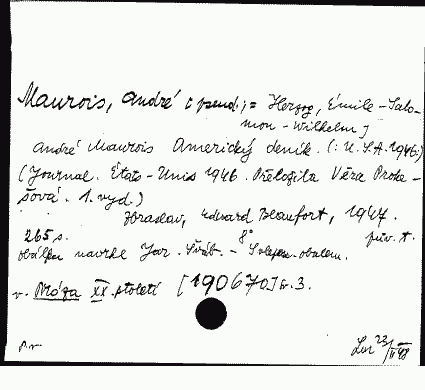 Maurois, André [pseud.; = Herzog, Émile-Salo-
mon-Wilhelm]
André Maurois Americký deník. (: U.S.A. 1946:)
(Journal. États-Unis 1946. Přeložila Věra Proke-
šová. 1. vyd.)
Zbraslav, Eduard Beaufort, 1947.
265 s. 8° pův. t.
obálku navrhl Jar. Šváb. - S obalem.
v. Próza XX. století [190670] sv. 3.